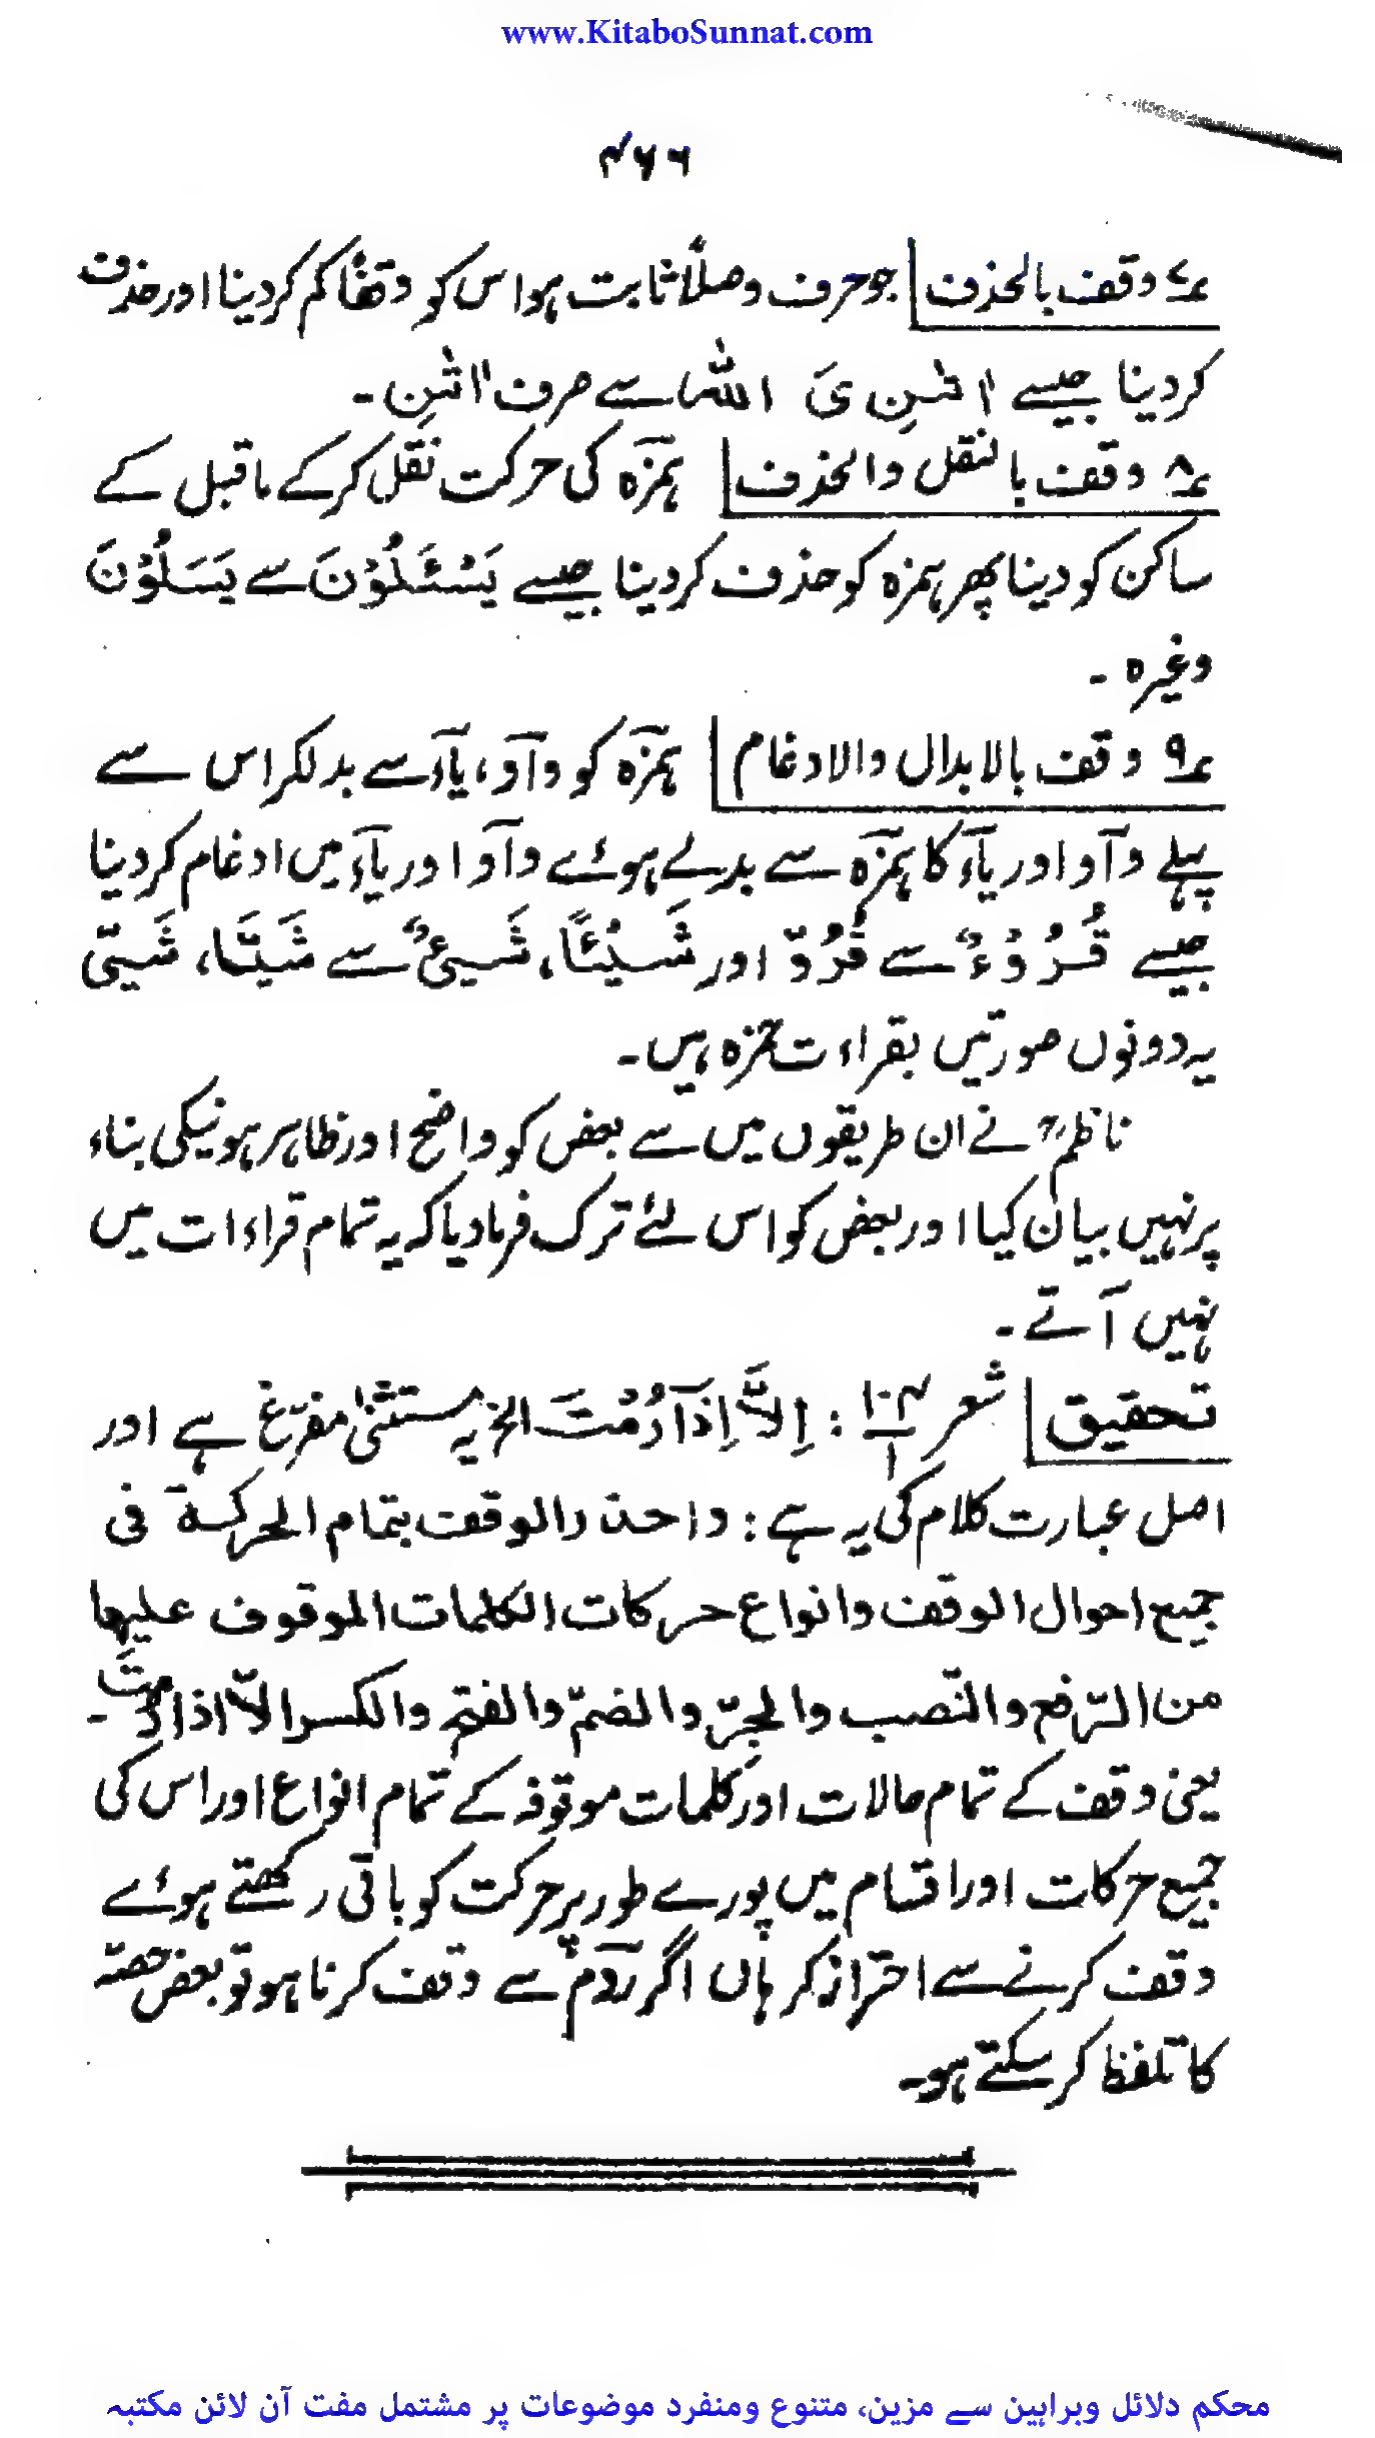 www.KitaboSunnat.com
۴۶۶
؏۷ وقف بالحذف جو حرف وصلاً ثابت ہو اس کو وقفاً کم کردینا اور حذف
کردینا جیسے اٰتٰىنِ یَ اللہُ سے صرف اٰتٰىنِ۔
؏۸ وقف بالنقل والحذف ہمزٓہ کی حرکت نقل کرکے ماقبل کے
ساکن کو دینا پھر ہمزہ کو حذف کردینا جیسے یَسْـَٔلُوْنَ سے یَسَلُوْنَ
وغیرہ ۔
؏۹ وقف بالابدال والادغام ہمزٓہ کو وآو، یآء سے بدلکر اس سے
پہلے وآو اور یآء کا ہمزٓہ سے بدلے ہوئے وآو اور یآء میں ادغام کردینا
جیسے قُرُوْءٌ سے قُرُوّ اور شَیْئًا، شَیْءٌ سے شَیَّا، شَیّ
یہ دونوں صورتیں بقراءت حمزہ ہیں۔
ناظمؒ نے ان طریقوں میں سے بعض کو واضح اور ظاہر ہونیکی بناء
پر نہیں بیان کیا اور بعض کو اس لئے ترک فرمادیا کہ یہ تمام قراءات میں
نہیں آتے ۔
تحقیق شعر ۱۰۴/۱ : اِلاَّ اِذَا رُمْتَ الخ یہ مستثنیٰ مفرّغ ہے اور
اصل عبارت کلام کی یہ ہے : واحذر الوقف بتمام الحرکة فی
جمیع احوال الوقف وانواع حرکات الکلمات الموقوف علیہا
من الرّفع والنّصب والجرّ والضمّ والفتح والکسر الاّ اذا رُمتَ۔
یعنی وقف کے تمام حالات اور کلمات موقوفہ کے تمام انواع اور اس کی
جمیع حرکات اور اقسام میں پورے طور پر حرکت کو باقی رکھتے ہوئے
وقف کرنے سے احتراز کر ہاں اگر رَوٓم سے وقف کرنا ہو تو بعض حصّہ
کا تلفظ کرسکتے ہو۔
محکم دلائل وبراہین سے مزین، متنوع ومنفرد موضوعات پر مشتمل مفت آن لائن مکتبہ